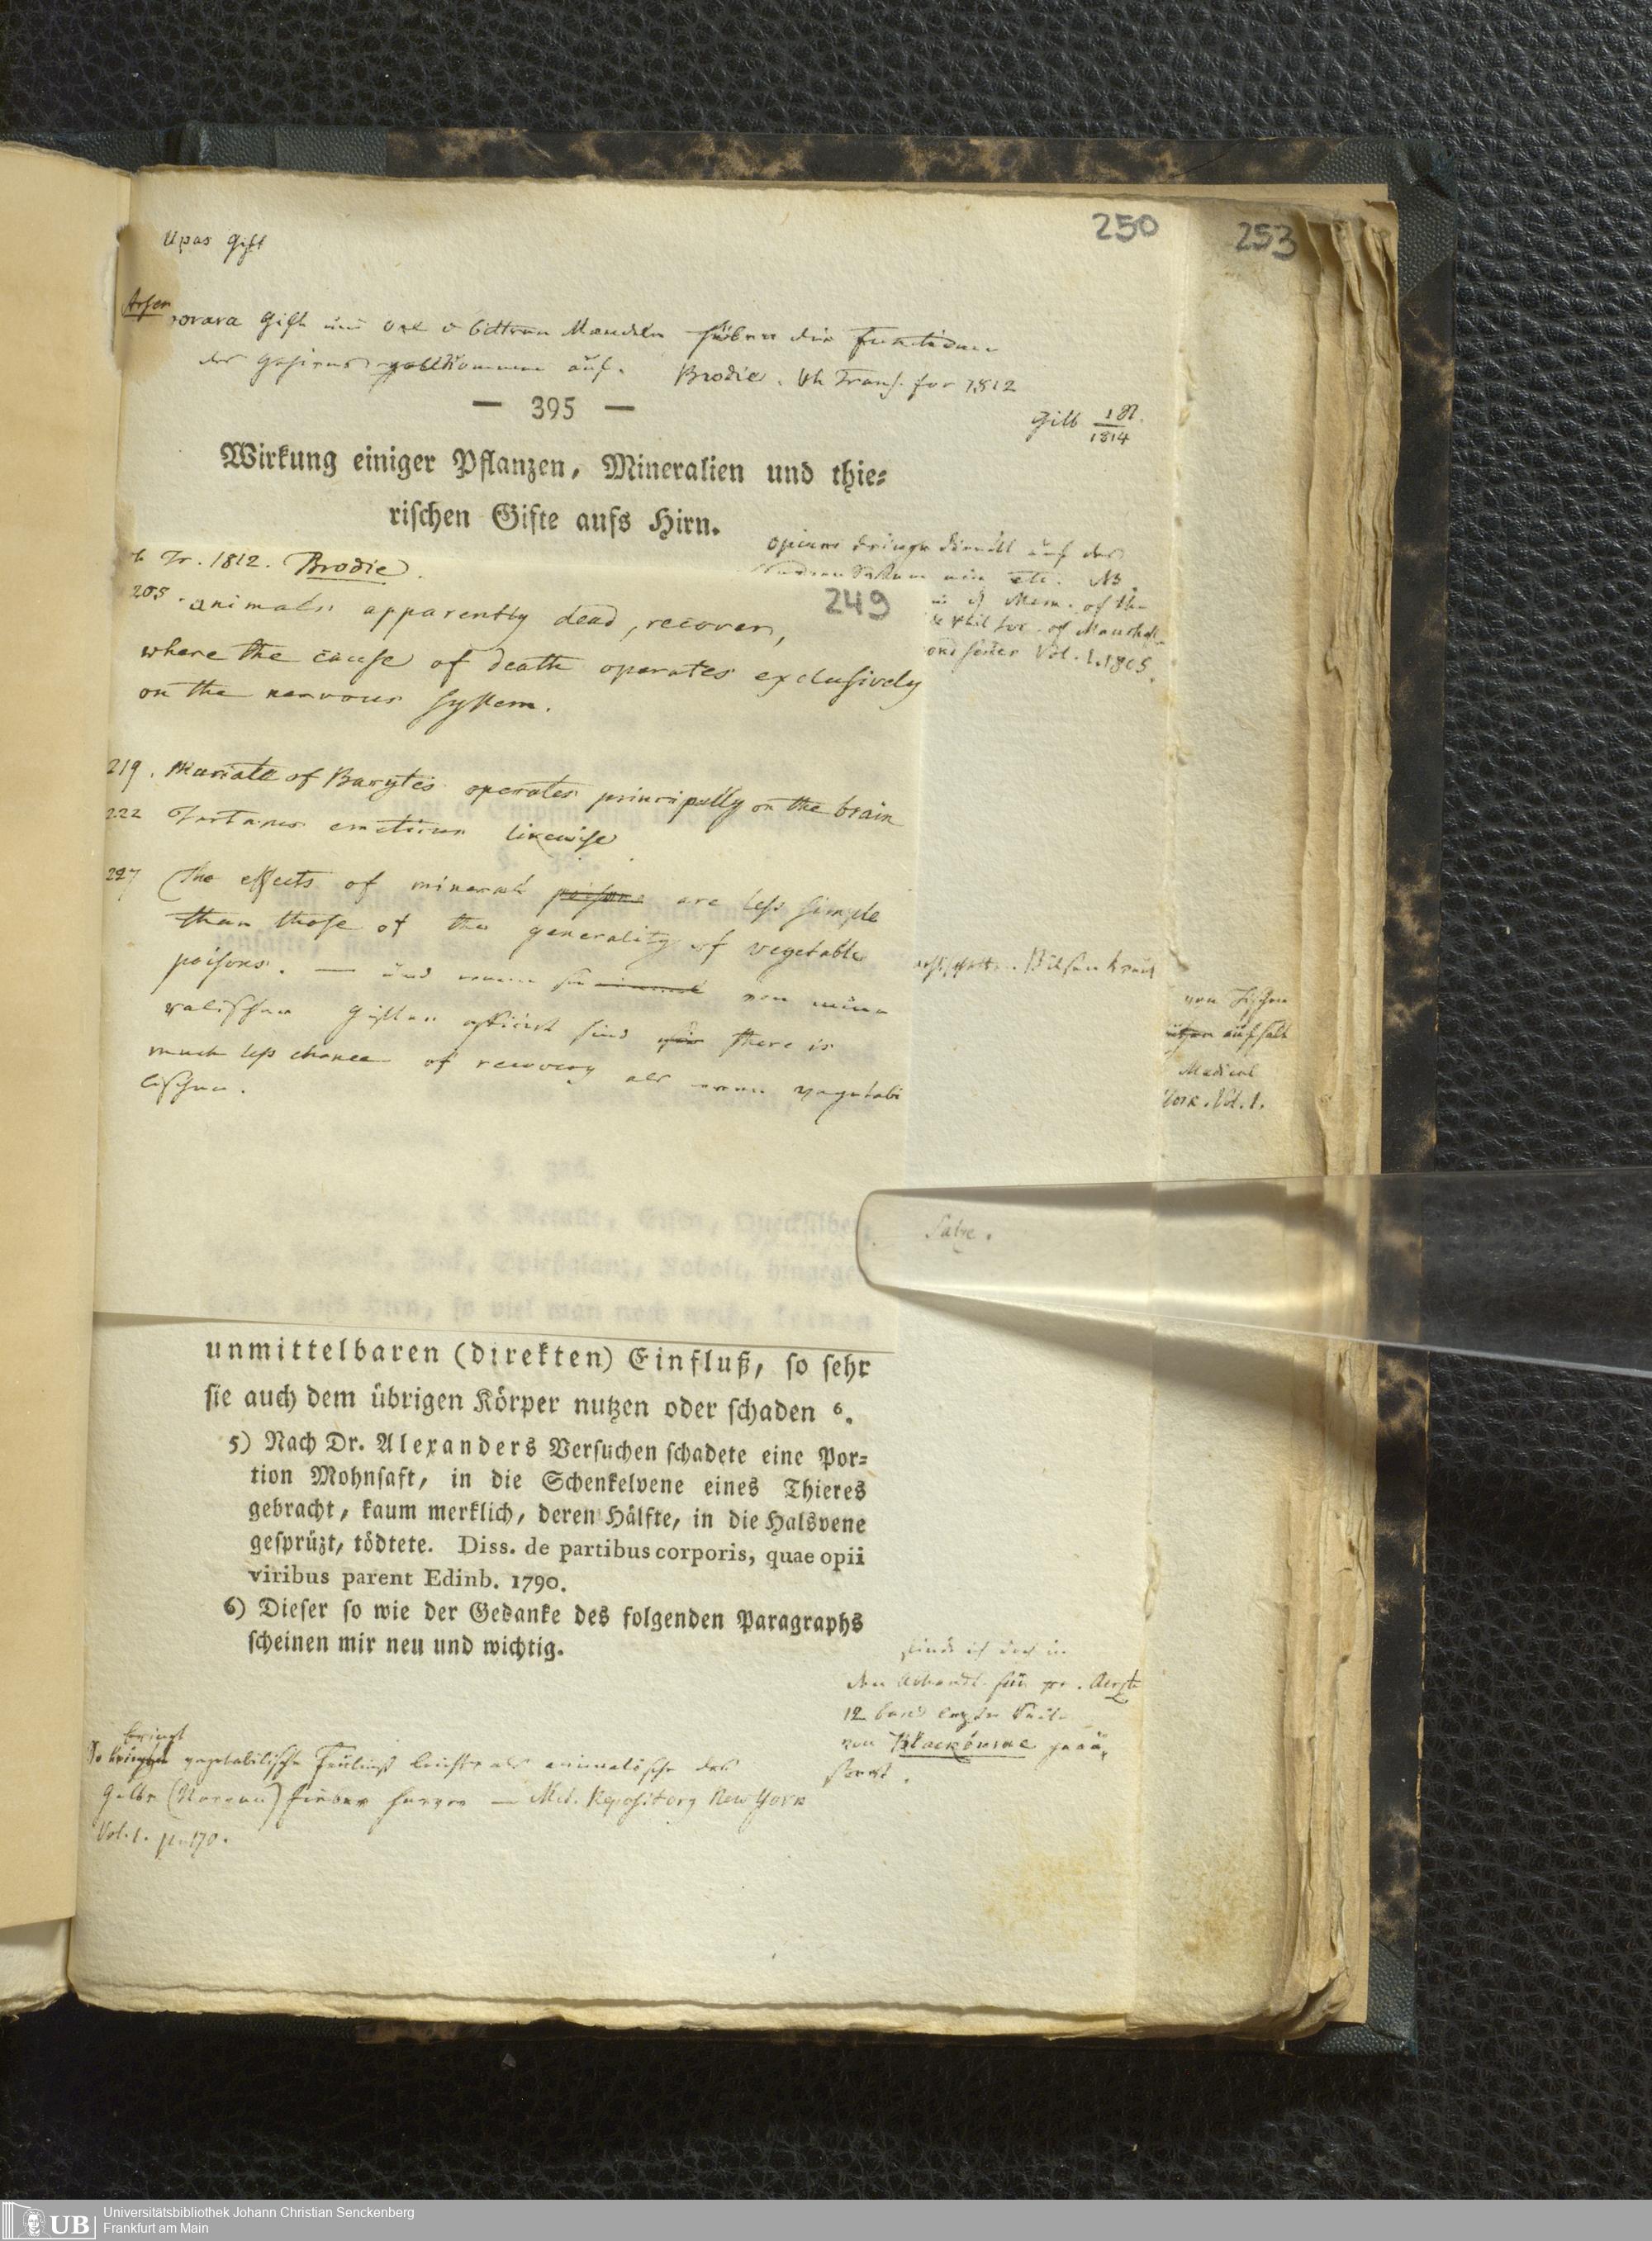 250
253
Upas Gift
Arsen
Gift und Oel v bittern Mandeln heben die Functionen
des Gehirns vollkommen auf. Brodie. Ph Trans. for 1812
Gilb 18
1814
— 395 —
Wirkung einiger Pflanzen, Mineralien und thie-
rischen Gifte aufs Hirn.
opium direckt auf das
etc. NB
Mem. of the
of Manchest
Vol. 1. 1805.
Tr. 1812. Brodie.
249
205. animals apparently dead, recover,
where the cause of death operates exclusively
on the nervous system.
219. Muriate of Barytes operates principally on the brain
222 Tartarus emeticus likewise
227 The effects of mineral poisons are less simple
than those of the generality of vegetable
poisons. — und wenn sie von mine
ralischen Giften afficirt sind there is
much less chance of recovery als vegetabi
lischen.
Bilsenkraut
von
Medical
York. Vol. 1.
Salze.
unmittelbaren (direkten) Einfluß, so sehr
sie auch dem übrigen Körper nutzen oder schaden 6.
5) Nach Dr. Alexanders Versuchen schadete eine Por-
tion Mohnsaft, in die Schenkelvene eines Thieres
gebracht, kaum merklich, deren Hälfte, in die Halsvene
gesprüzt, tödtete. Diss. de partibus corporis, quae opii
viribus parent Edinb. 1790.
6) Dieser so wie der Gedanke des folgenden Paragraphs
scheinen mir neu und wichtig.
finde ich doch in
den Abhandl. für pr. Aerzte
12 Band letzte Seite
von Blackburne geäu
sert.
bringt
So vegetabilische Fäulniß leichter als animalische das
Gelbe (Nerven) fieber hervor — Med. Repository New York
Vol. 1. p. 170.
UB
Universitätsbibliothek Johann Christian Senckenberg
Frankfurt am Main